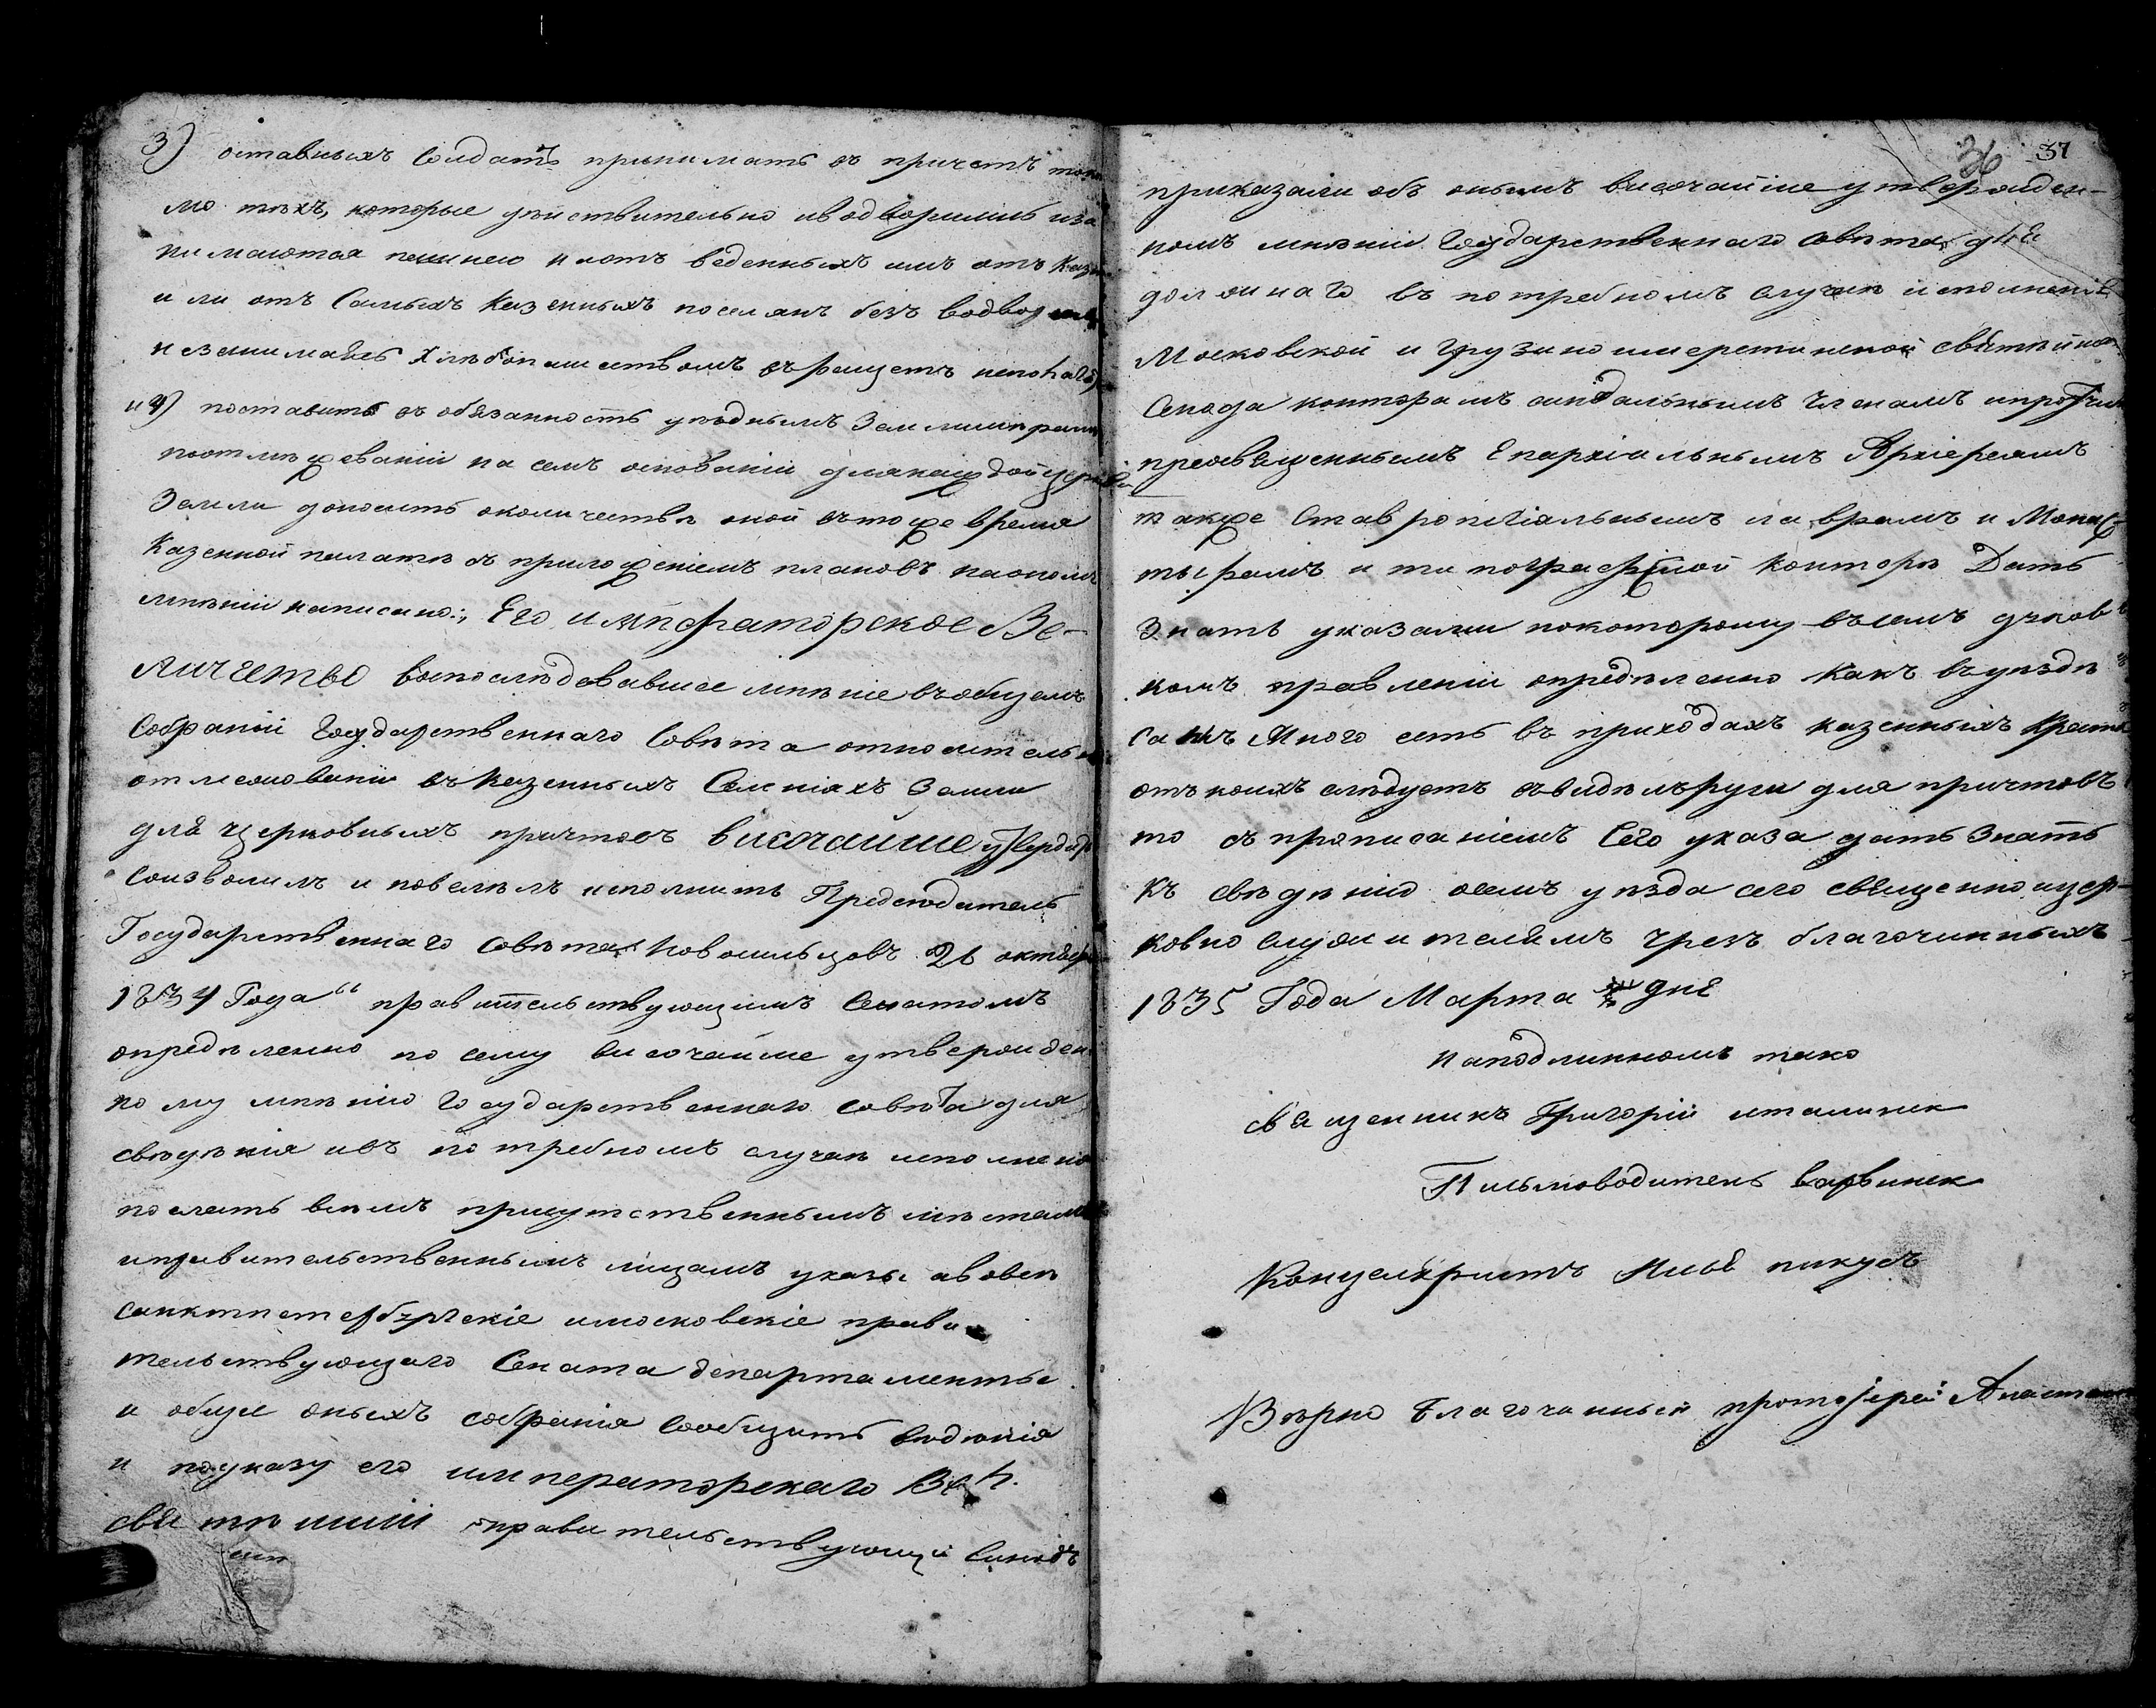 3) оставныхъ Солдатъ принимать въ причетъ
мо тѣхъ, которые дѣйствительно иводворились иза
нимаются пашнею
или отъ Самыхъ Казенныхъ поселянъ безъ
незанимаясь хлѣбопашествомъ въращетъ
и 4) поставить въ обязанность уѣзднымъ Землимѣрамъ
поотмѣжеваніи на семъ основаніи длякаждой церкви
Земли доносить околичествѣ оной втоже время
Казенной палатѣ съ приложеніемъ плановъ наономъ
мнѣніи написано: Его императорское Ве-
личество воспослѣдовавшее мнѣніе въобщемъ
Собраніи Государственнаго Совѣта относительно
отмежованіи въ Казенныхъ Селеніяхъ Земли
для церковныхъ причтовъ высочайше
Соизволилъ и повелѣлъ исполнить Предсѣдатель
Государственнаго совѣта Новосильцовъ 26 октября
1834 Года“ правительствующимъ Сенатомъ
опредѣленно по сему высочайше утвержден
ному мнѣнію Государственнаго совѣта для
свѣдѣнія ивъ потребномъ случаѣ исполненія
послать всѣмъ присутственнымъ мѣстамъ
иправительственнымъ лицамъ указы авовсѣ
санктпетербургскіе имосковскіе прави
тельствующаго Сената департаменты
и общіе оныхъ собранія Сообщить вѣдѣнія
и поуказу его императорскаго
святѣйшій правительствующій Синодъ
36 37
приказали объ ономъ высочайше утвержден-
номъ мнѣніи Государственнаго совѣта для
должнаго въ потребномъ случаѣ исполненія
Московской и Грузиноимеретинской святѣйшаго
Синода конторамъ синодальнымъ Членамъ ипрочимъ
преосвященнымъ Епархіальнымъ Архіереямъ
также Ставропигіальнымъ лаврамъ и Монас-
тырамъ и типографской Конторѣ Дать
Знать указами покоторому въсемъ духов
номъ правленіи опредѣленно Какъ въуѣздѣ
семъ Много есть въ приходахъ казенныхъ
отъ коихъ слѣдуетъ ввидѣ руги для причтовъ
то съ прописаніемъ Сего указа дать Знать
къ свѣдѣнію всемъ уѣзда сего священноцер-
ковно служителямъ чрезъ благочинныхъ
1835 Года Марта дня
Наподлинномъ тако
Священникъ Григорій
Письмоводитель
Концеляристъ
Вѣрно Благочинный протоіерей